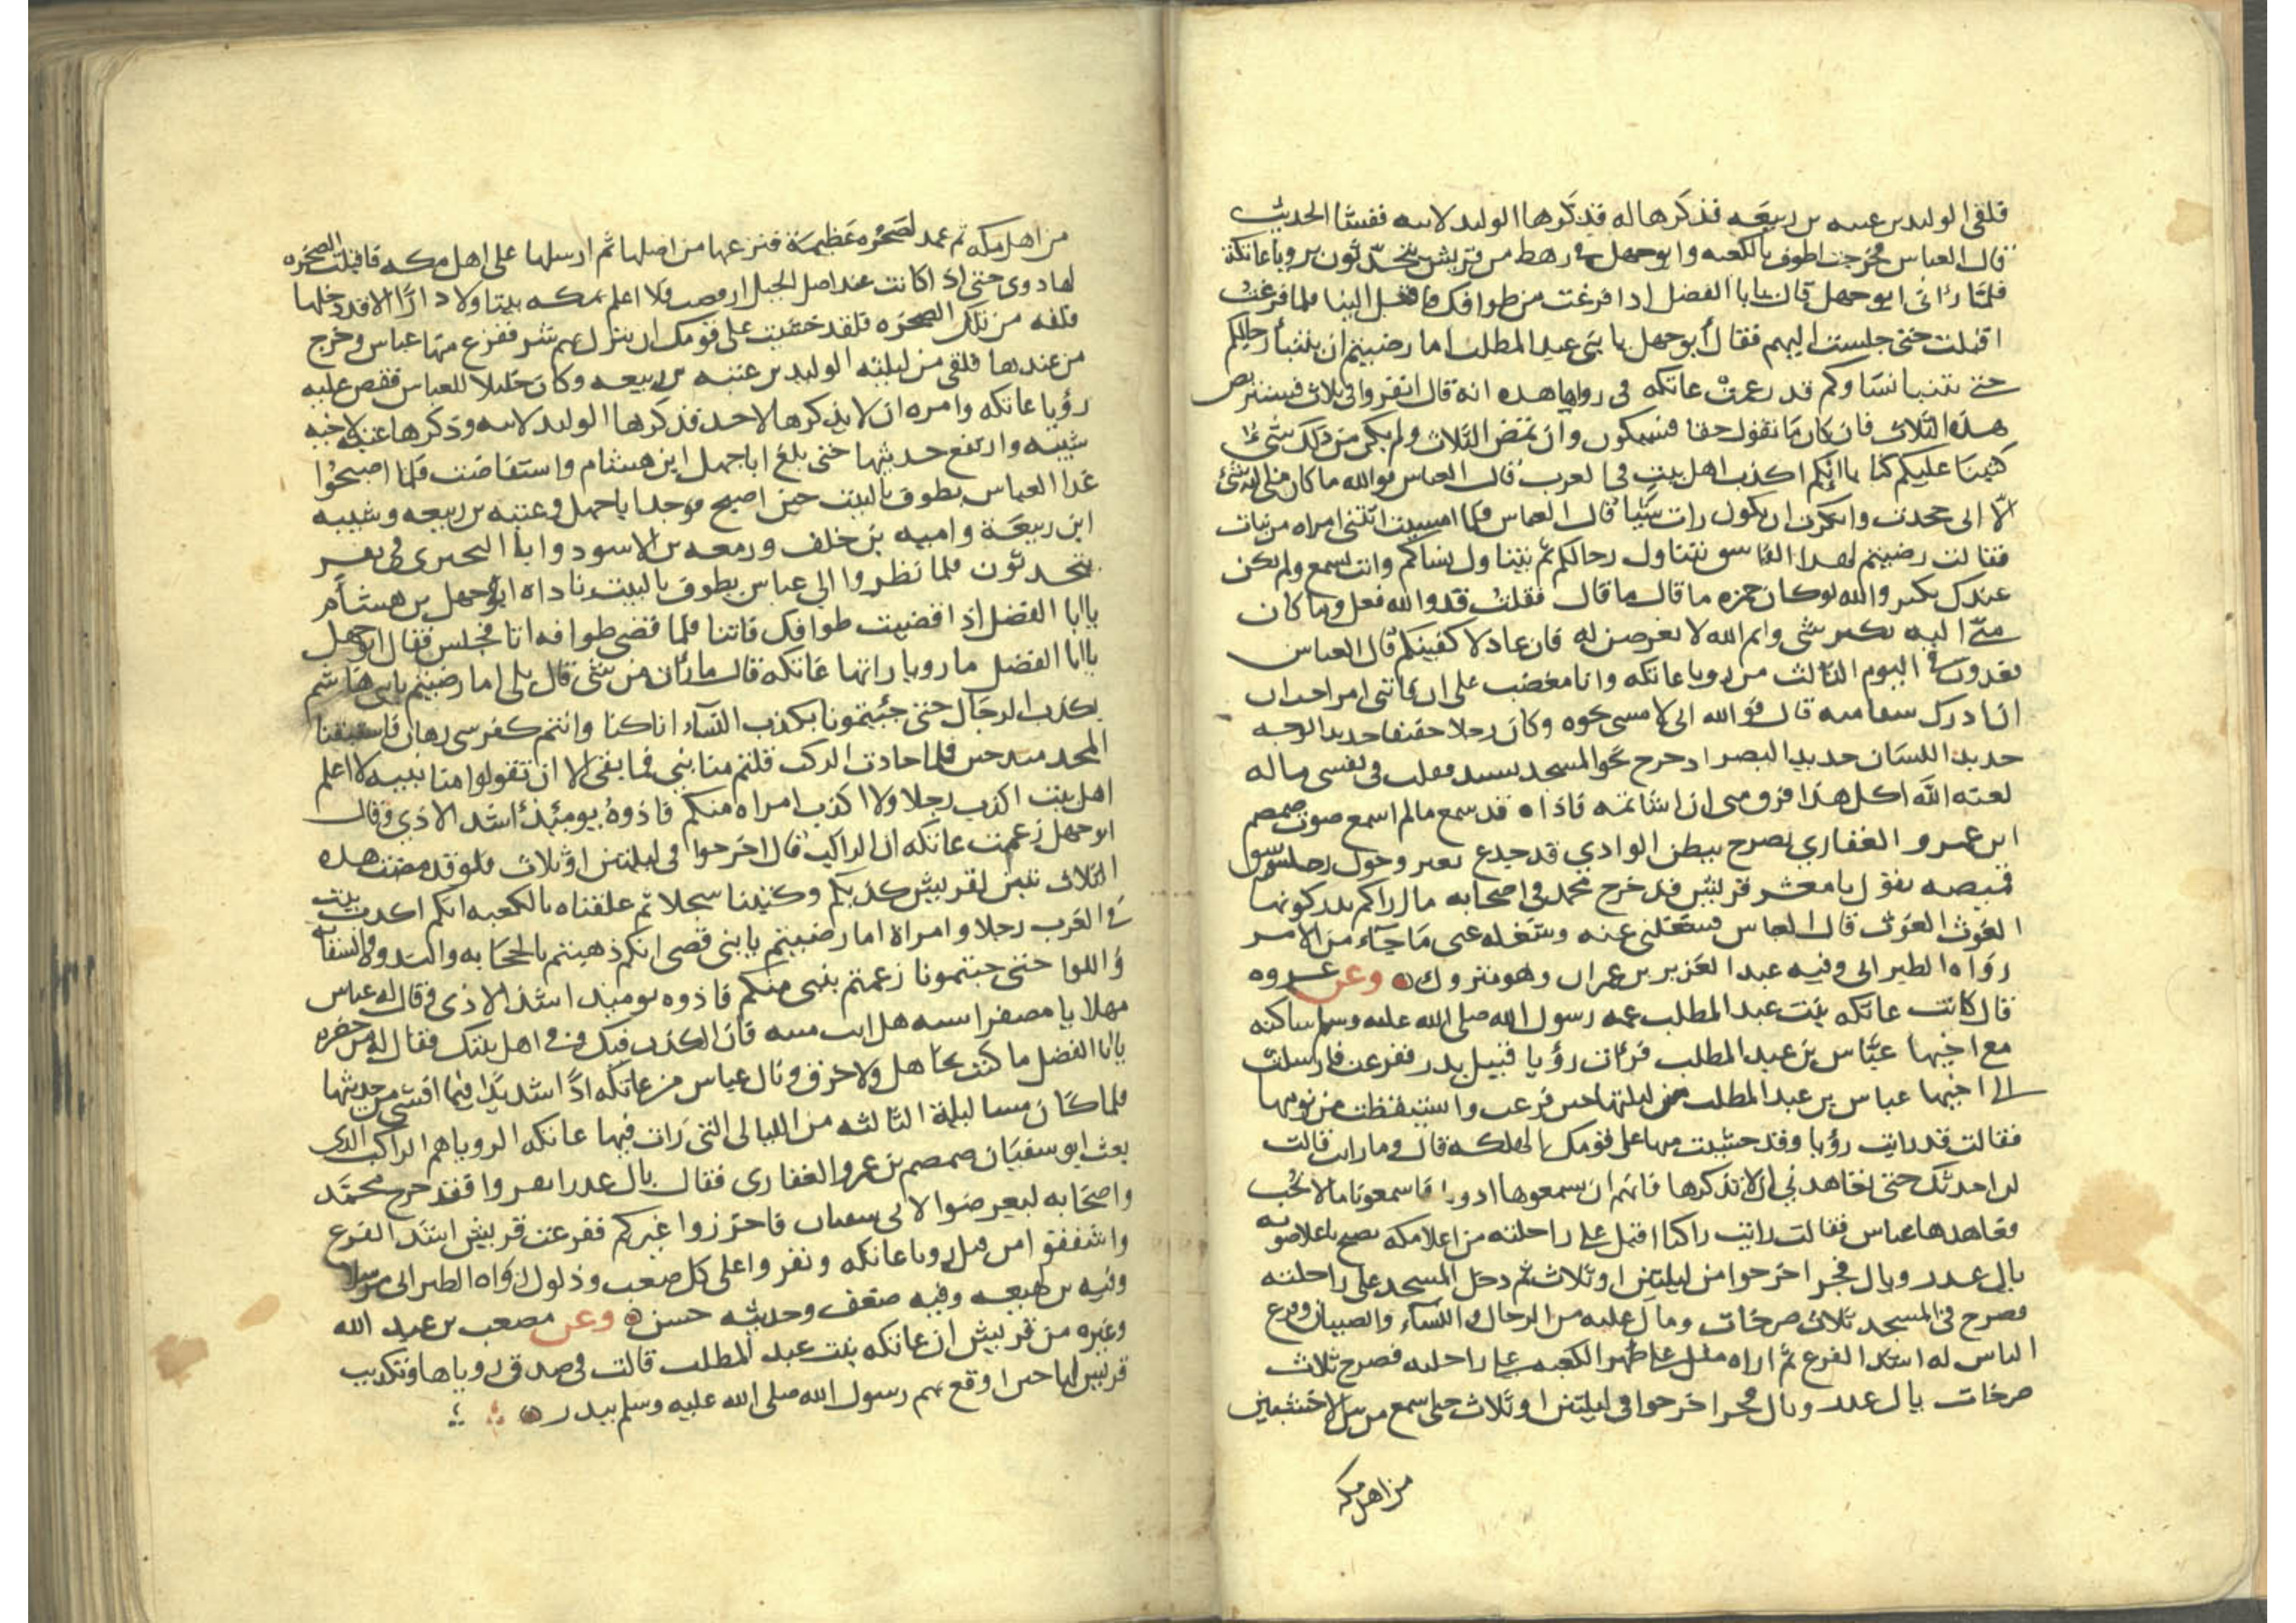 فلقى الوليد بن عتبه بن ربيعه فذكرها له فذكرها الوليد لابيه ففشا الحديث
قال العباس فخرجت اطوف بالكعبه وابو جهل في رهط من قريش يتحدثون برويا عاتكة
فلما رانى ابو جهل قال يا ابا الفضل اذا فرغت من طوافك فاقبل الينا فلما فرغت
اقبلت حتى جلست اليهم فقال أبو جهل يا بنى عبد المطلب اما رضيتم ان يتنبأ رجالكم
حتى تتنبا نساوكم قد زعمت عاتكه فى روياها هذه انه قال انفروا فى ثلاث فسنتربص
هذه الثلاث فان كان ما تقول حقا فسيكون وان تمض الثلاث ولم يكن من ذلك شئ
كتبنا عليكم كتابا انكم اكذب اهل بيت فى العرب قال العباس فوالله ما كان منى اليه شئ
الا انى جحدت وانكرت ان يكون رات شيا قال العباس فلما امسيت اتتنى امراه من بنات
فقالت رضيتم لهذا الفاسق يتناول رجالكم ثم يتناول نساكم وانت تسمع ولم يكن
عندك نكير والله لو كان حمزه ما قال ما قال فقلت قد والله فعل وما كان
منى اليه نكير شى وايم الله لا تعرضن له فان عاد لاكفينكم قال العباس
فغدوت فى اليوم الثالث من رويا عاتكه وانا مغضب على ان فاتنى امر احب ان
ادرك شيئا منه قال فوالله انى لامشى نحوه وكان رجلا خفيفا حديد الوجه
حديد اللسان حديد البصر اذ خرج نحو المسجد يشتد فقلت فى نفسى ما له
لعنه الله اكل هذا فرق منى ان اشاتمه فاذا ه قد سمع ما لم اسمع صوت ضمضم
ابن عمرو الغفاري يصرخ ببطن الوادي قد جدع بعيره وحول رحله وشق
قميصه يقول يا معشر قريش قد خرج محمد فى اصحابه ما اراكم تدركونها
الغوث الغوث قال العباس فشغلنى عنه وشغله عنى ما جآء من الامر
رواه الطبرانى وفيه عبد العزيز بن عمران وهو متروك وعن عروه
قال كانت عاتكه بنت عبد المطلب عمه رسول الله صلى الله عليه وسلم ساكنه
مع اخيها عباس بن عبد المطلب فرات رؤيا قبيل بدر ففزعت فارسلت
الى اخيها عباس بن عبد المطلب من ليلتها حين فزعت واستيقظت من نومها
فقالت قد رايت رؤيا وقد خشيت منها على قومك الهلكه قال وما رايت قالت
لن احدثك حتى تعاهدني ان لا تذكرها فانهم ان يسمعوها اذونا فاسمعونا ما لا نحب
فعاهدها عباس فقالت رايت راكبا اقبل على راحلته من اعلا مكه يصيح باعلا صوته
يال غدر ويال فجر اخرجوا من ليلتين او ثلاث ثم دخل المسجد على راحلته
فصرخ فى المسجد ثلاث صرخات ومال عليه من الرجال والنساء والصبيان وفزع
الناس له اشد الفزع ثم اراه مثل على ظهر الكعبه على راحلته فصرخ ثلاث
صرخات يال غدر ويال فجر اخرجوا فى ليلتين او ثلاث حتى اسمع من بين الاخشبين
من اهل مكه
من اهل مكه ثم عمد لصخره عظيمة فنزعها من اصلها ثم ارسلها على اهل مكه فاقبلت الصخره
لها دوى حتى اذا كانت عند اصل الجبل ارفضت فلا اعلم بمكه بيتا ولا دارا الا قد دخلها
فلقه من تلك الصخره فلقد خشيت على قومك ان ينزل بهم شر ففزع منها عباس وخرج
من عندها فلقى من ليلته الوليد بن عتبه بن ربيعه وكان خليلا للعباس فقص عليه
رؤيا عاتكه وامره ان لا يذكرها لاحد فذكرها الوليد لابيه وذكرها عتبه لاخيه
شيبه وارتفع حديثها حتى بلغ ابا جهل ابن هشام واستفاضت فلما اصبحوا
غدا العباس يطوف بالبيت حين اصبح فوجد ابا جهل وعتبه بن ربيعه وشيبه
ابن ربيعة واميه بن خلف وزمعه بن الاسود وابا البخترى فى نفر
يتحدثون فلما نظروا الي عباس يطوف بالبيت ناداه ابو جهل بن هشام
ياابا الفضل اذا قضيت طوافك فاتنا فلما قضى طوافه اتا فجلس فقال ابو جهل
ياابا الفضل ما رويا راتها عاتكه قال ما رات من شى قال بلى اما رضيتم يا بنى هاشم
بكذب الرجال حتى جئتمونا بكذب النسآء انا كنا وانتم كفرسى رهان فاستبقنا
المجد منذ حين فلما حاذت الركب قلتم منا نبي فما بقى الا ان تقولوا منا نبيه لا اعلم
اهل بيت اكذب رجلا ولا اكذب امراه منكم فاذوه يومئذ اشد الاذى وقال
ابو جهل زعمت عاتكه ان الراكب قال اخرجوا فى ليلتين او ثلاث فلو قد مضت هذه
الثلاث تبين لقريش كذبكم وكتبنا سجلا ثم علقناه بالكعبه انكم اكذب بيت
فى العرب رجلا وامراة اما رضيتم يا بنى قصى انكم ذهبتم بالحجابه والندوه والسقايه
واللوا حتى جيتمونا زعمتم بنبى منكم فاذوه يوميذ اشد الاذى وقال له عباس
مهلا يا مصفر استه هل انت منته فان الكذب فيك وفى اهل بيتك فقال له من حضره
ياابا الفضل ما كنت بجاهل ولا خرف ونال عباس من عاتكه اذا شديدا فيما افشى من حديثها
فلما كان مسا ليلة الثالثه من الليالى التى رات فيها عاتكه الرويا هم الراكب الذى
بعث ابو سفيان ضمضم بن عمرو الغفارى فقال يال غدر انفروا فقد خرج محمد
واصحابه ليعرضوا لابى سفيان فاحترزوا عيركم ففزعت قريش اشد الفزع
واشفقوا من قبل رويا عاتكه ونفروا على كل صعب وذلول رواه الطبرانى مرسلا
وفيه بن لهيعه وفيه ضعف وحديثه حسن وعن مصعب بن عبد الله
وغيره من قريش ان عاتكه بنت عبد المطلب قالت فى صدق روياها وتكذيب
قريش لها حين اوقع بهم رسول الله صلى الله عليه وسلم ببدر